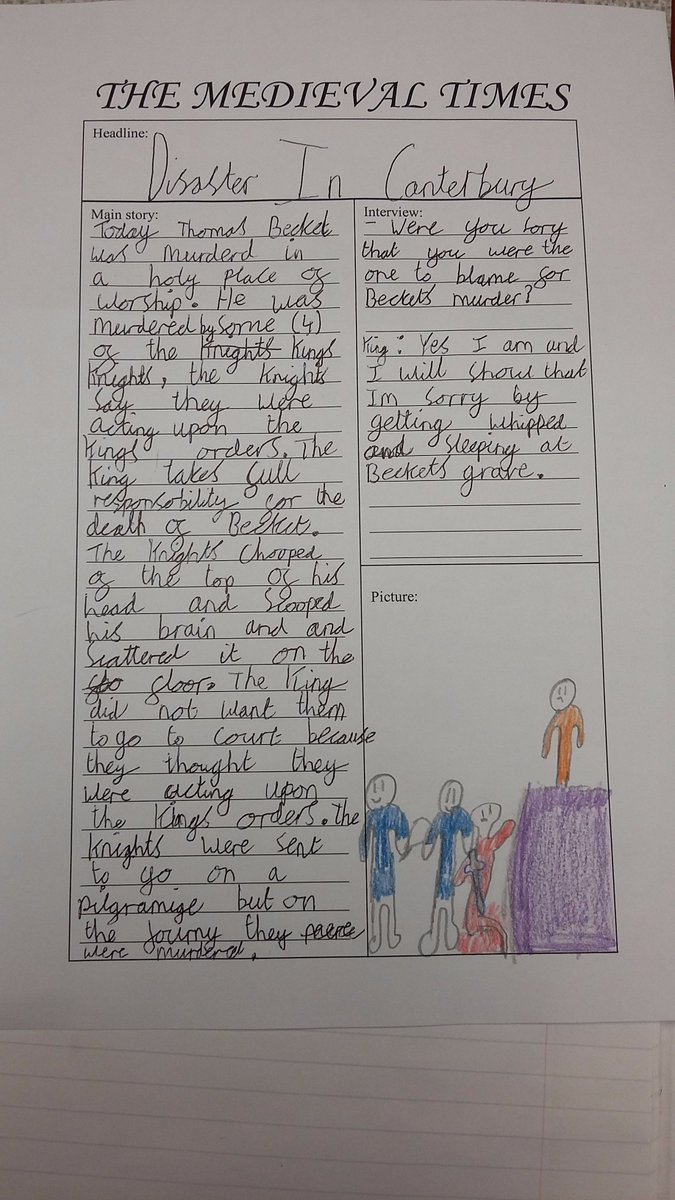 THE MEDIEVAL TIMES
Headline:
Disaster In Canterbury
Main story:
Today Thomas Becket
was murderd in
a holy place of
worship. He was
murdered by some (4)
of the Knights Kings
Knights, the Knights
say they were
acting upon the
Kings orders. The
King takes full
responsobility for the
death of Becket.
The Knights Chooped
of the top of his
head and Scooped
his brain and and
Scattered it on the
floor. The King
did not want them
to go to court because
they thought they
were acting upon
the Kings orders. The
Knights were sent
to go on a
pilgramige but on
the journy they
were murdered.
Interview:
- Were you sory
that you were the
one to blame for
Beckets murder?
King: Yes I am and
I will show that
Im sorry by
getting whipped
and sleeping at
Beckets grave.
Picture: